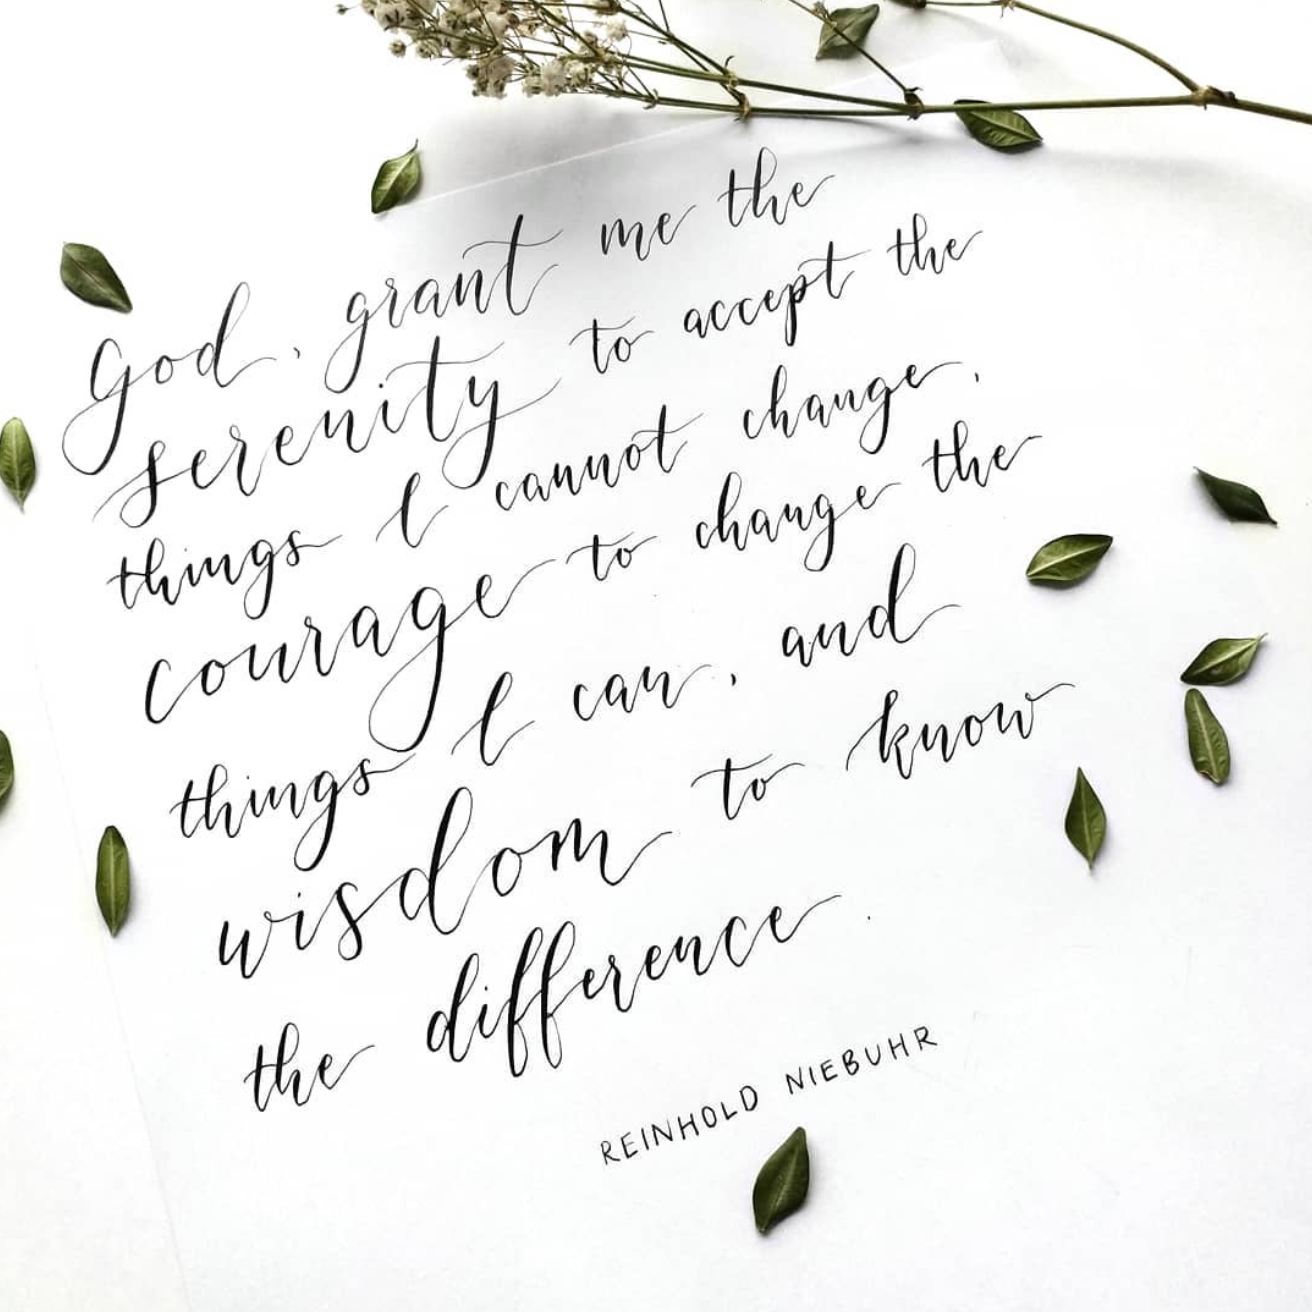 God, grant me the
serenity to accept the
things I cannot change,
courage to change the
things I can, and
wisdom to know
the difference.
REINHOLD NIEBUHR